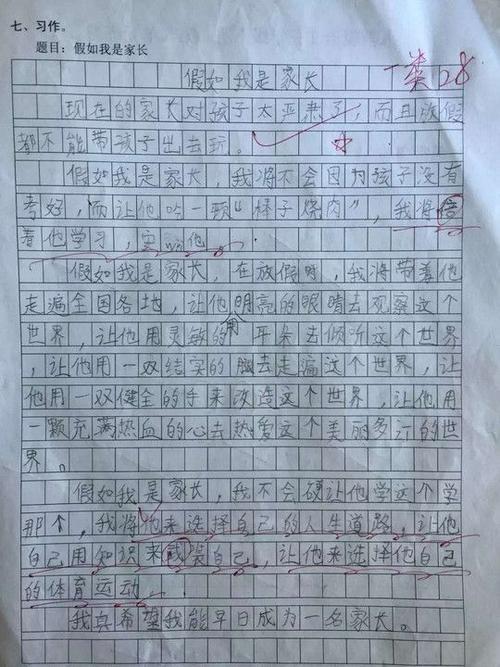 七、习作。
题目：假如我是家长
一类28
假如我是家长
现在的家长对孩子太严肃了，而且放假
都不能带孩子出去玩。
假如我是家长，我将不会因为孩子没有
考好，而让他吃一顿“棒子烧肉”，我将陪
着他学习，安慰他。
假如我是家长，在放假时，我将带着他
走遍全国各地，让他用明亮的眼睛去观察这个
世界，让他用灵敏的耳朵去倾听这个世界
，让他用一双结实的脚去走遍这个世界，让
他用一双健全的手来改造这个世界，让他用
一颗充满热血的心去热爱这个美丽多的世
界。
假如我是家长，我不会硬让他学这个学
那个，我将他来选择自己的人生道路，让他
自己用知识来自己，让他来选择他自己
的体育运动。
我真希望我能早日成为一名家长。